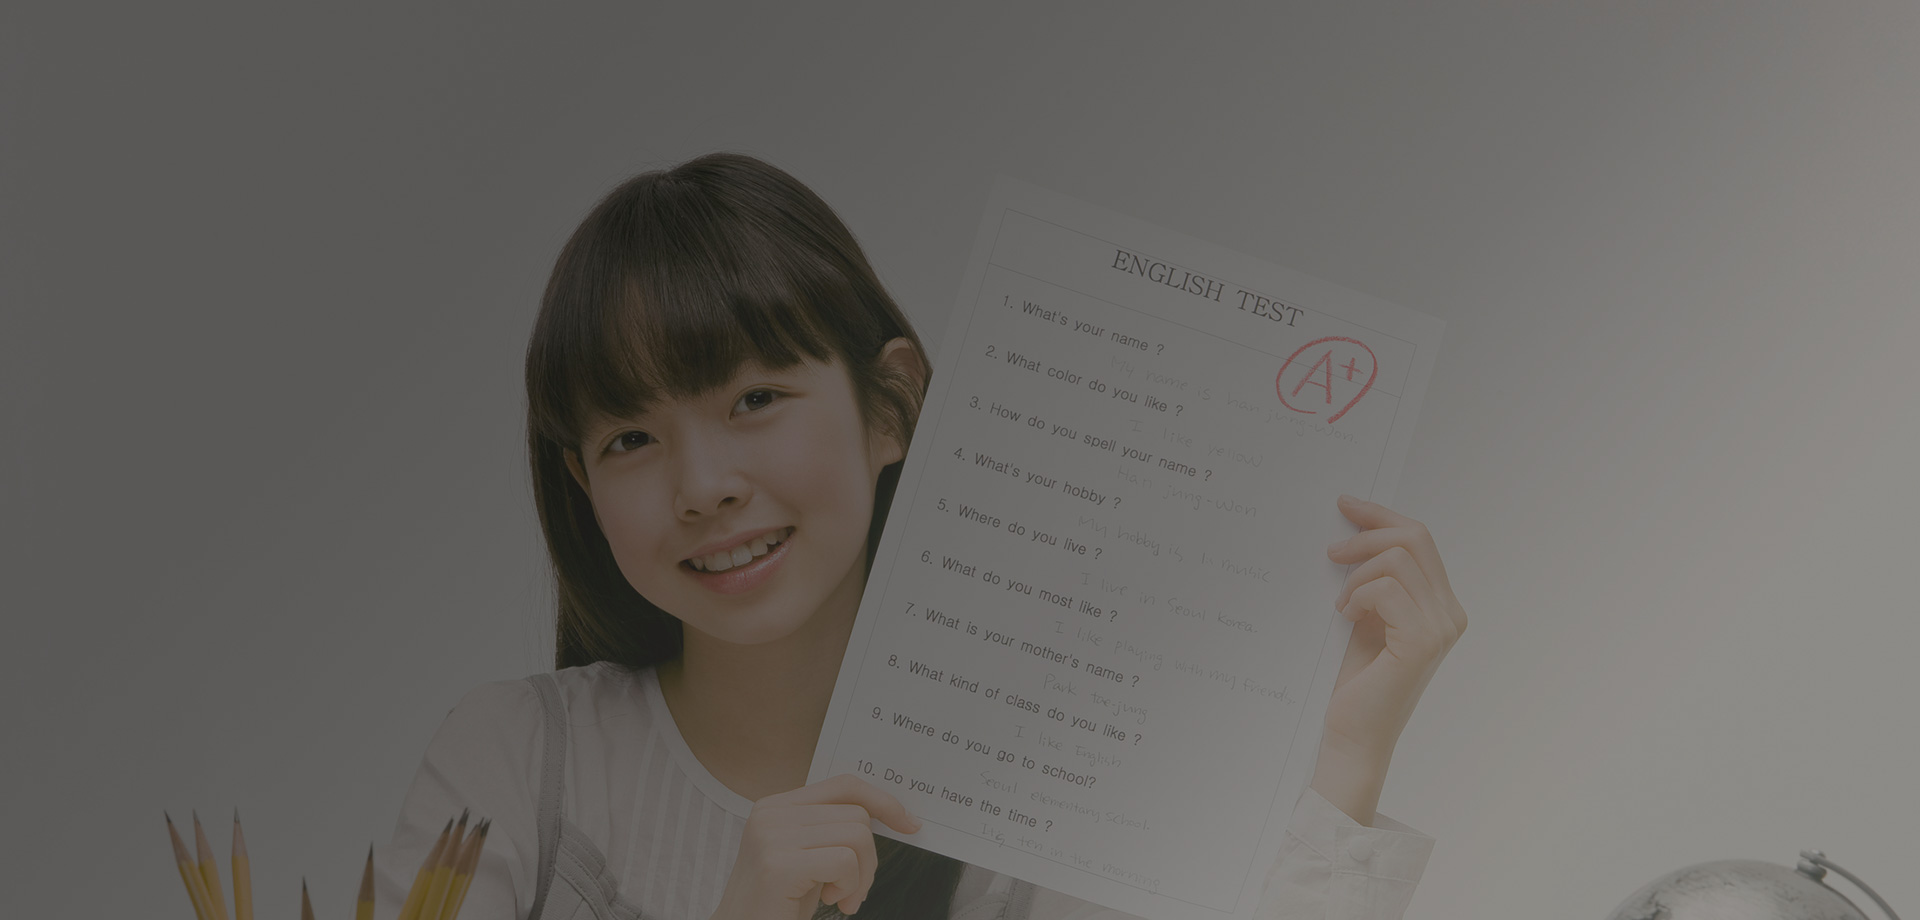 ENGLISH TEST
A+
1. What's your name ?
My name is han jung-won.
2. What color do you like ?
I like yellow
3. How do you spell your name ?
Han jung-won
4. What's your hobby ?
My hobby is music
5. Where do you live ?
I live in Seoul korea.
6. What do you most like ?
I like playing with my friends.
7. What is your mother's name ?
Park tae-jung
8. What kind of class do you like ?
I like English
9. Where do you go to school?
Seoul elementary school.
10. Do you have the time ?
ten in the morning